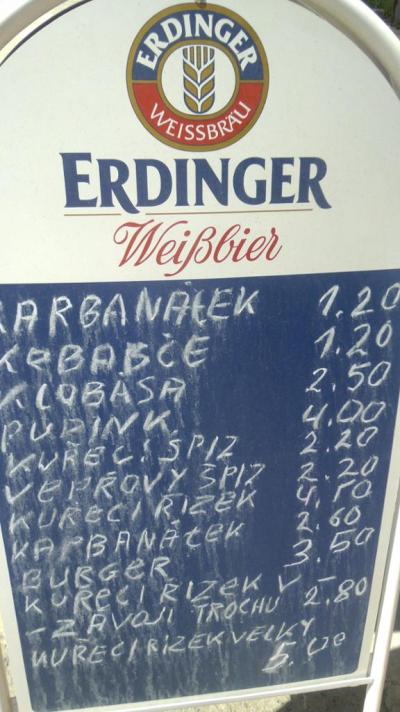 ERDINGER
WEISSBRÄU
ERDINGER
Weißbier
KARBANÁTEK 1.20
KEBABČE 1.20
KLOBÁSA 2.50
PUPINK. 4.00
KUŘECI ŠPIZ 2.20
VEPŘOVÝ ŠPIZ 2.20
KUŘECI ŘIZEK
KARBANÁTEK 2.60
BURGER 3.50
KUŘECI ŘIZEK V
- ZÁVOJI TROCHU 2.80
KUŘECI ŘIZEK VELKY
5.00